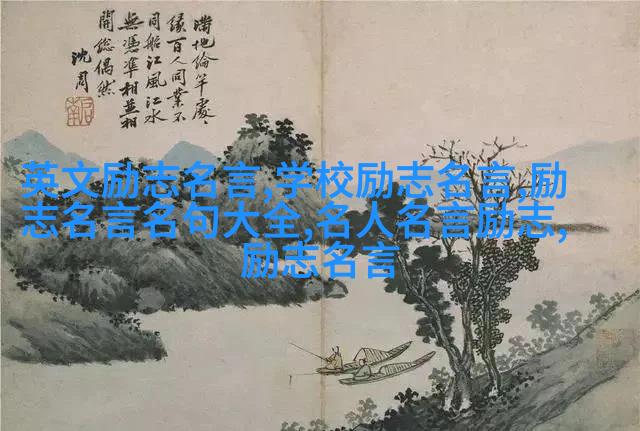 滿地綸竿處〻
緣百人同業不
同船江風江水
無憑準相並相
開總偶然
沈周
英文励志名言,学校励志名言,励
志名言名句大全,名人名言励志,
励志名言